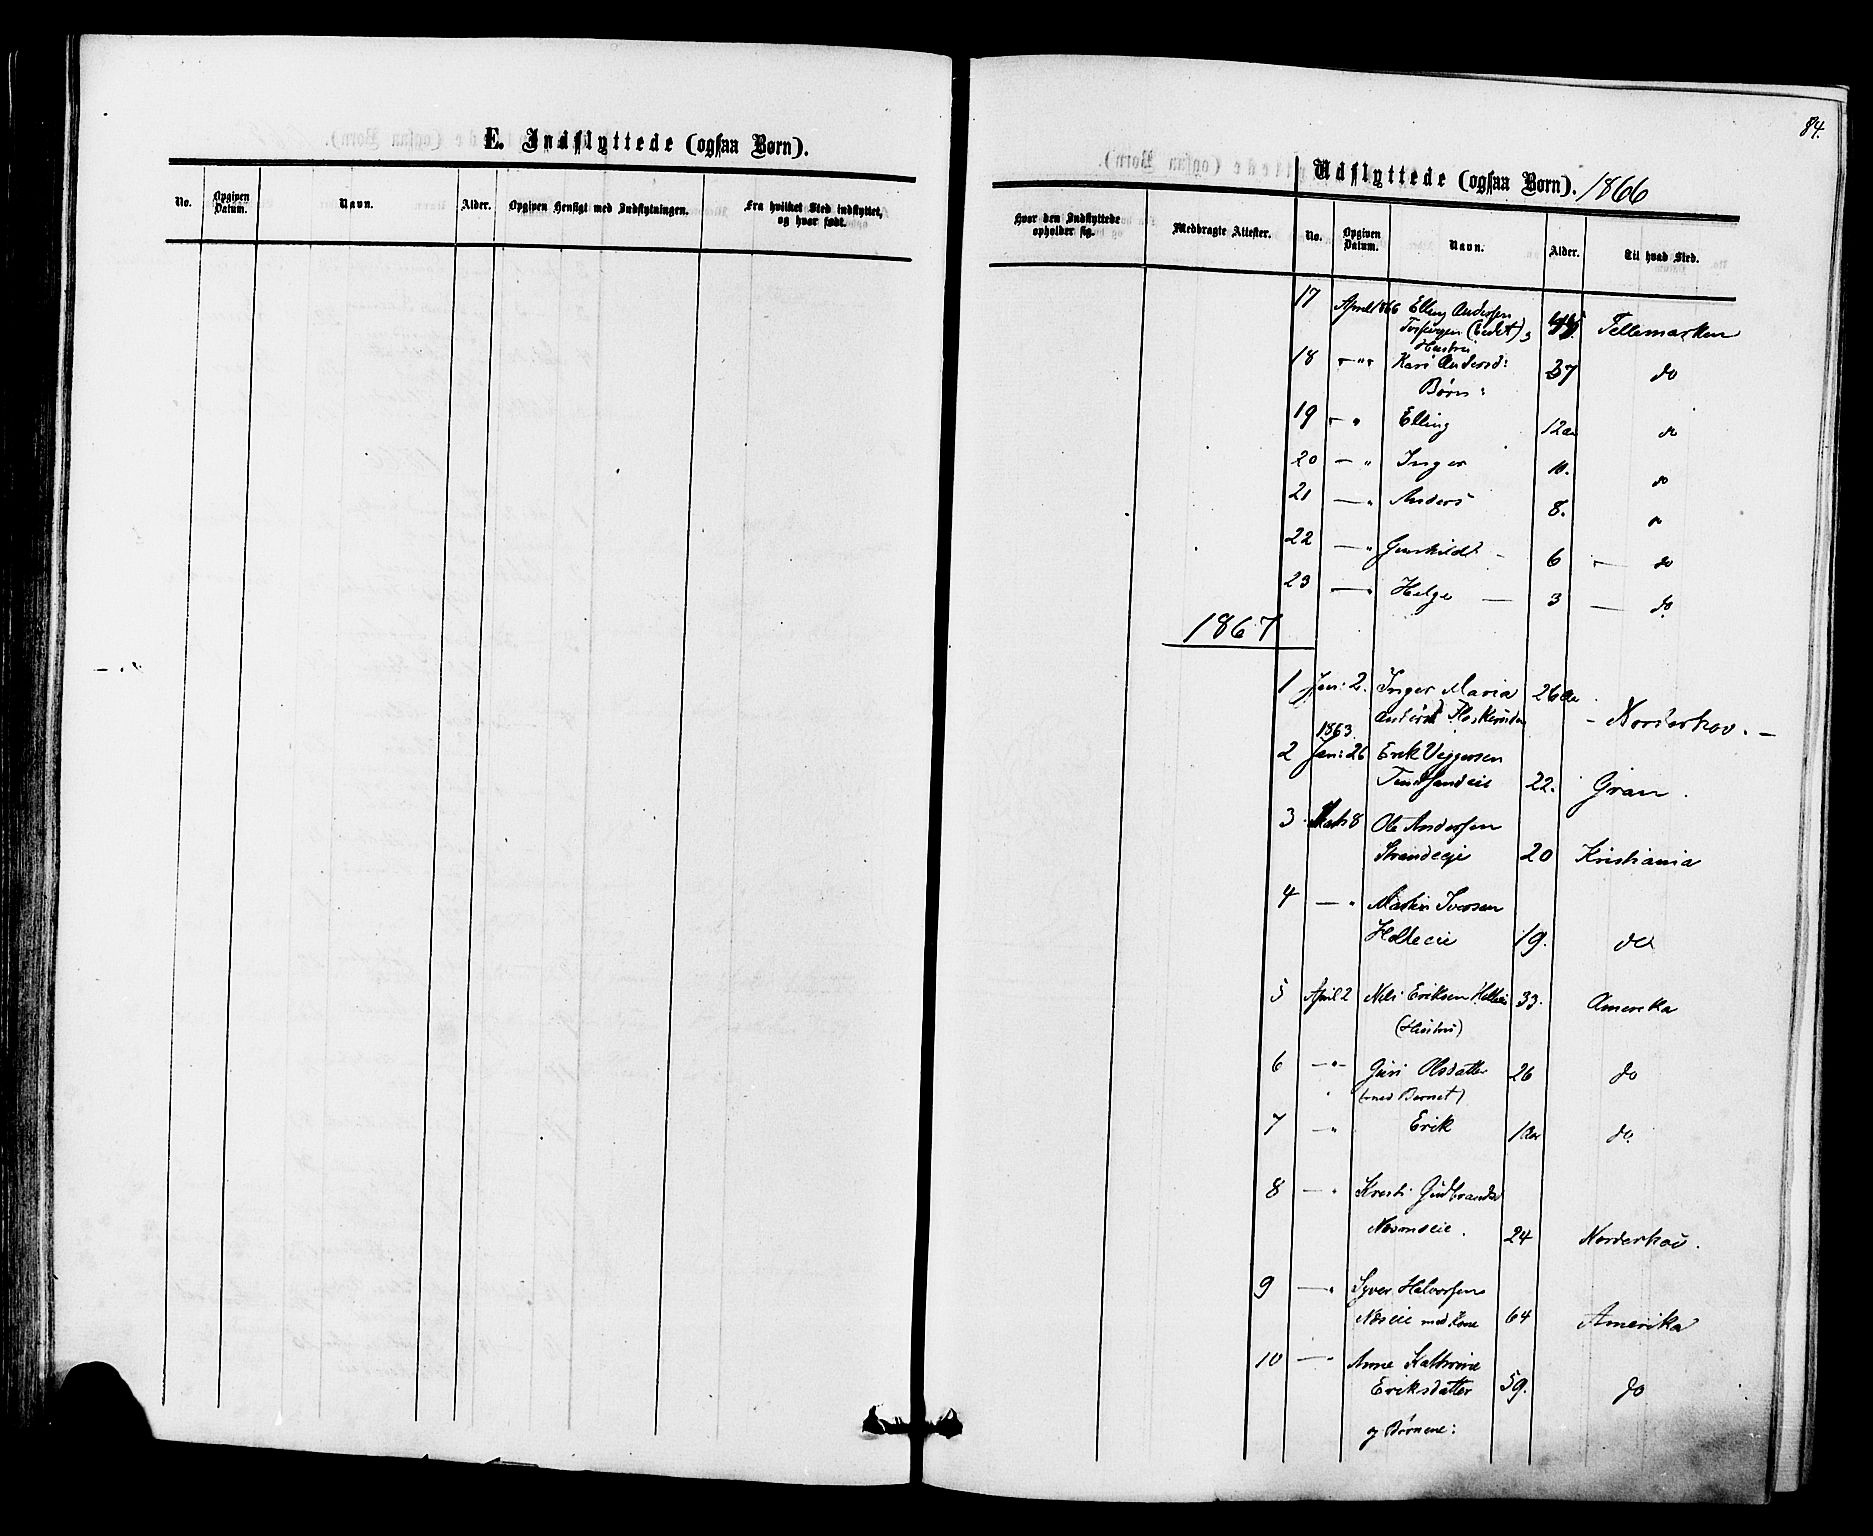 84.
E. Indflyttede (ogsaa Børn).
No. Opgiven Datum. Navn. Alder. Opgiven Hensigt med Indflytningen. Fra hvilket Sted indflyttet, og hvor født.
Udflyttede (ogsaa Børn). 1866
Hvor den Indflyttede opholder sig. Medbragte Attester. No. Opgiven Datum. Navn. Alder. Til hvad Sted.
17 April 1866 Elling Andersen Tellemarken
Hustru
18 — " Kari Andersd: 37 do
Børn:
19 — " Elling 12 do
20 — " Inger 10. do
21 — " Anders 8. do
22 — " Gunhild 6 — do
23 — " Helge — 3 — do
1867
1 Jan: 2. Inger Maria 26
Norderhov. —
1863
2 Jan: 26 Erik
22. Gran.
3 8 Ole Andersen
Strandeie 20 Kristiania
4 — " Martin Iversen
Holteeie 19. do
5 April 2 Nils Eriksen 33. Amerika
(Hustru)
6 — " — Guri Olsdatter 26 do
(med Barnet)
7 — " Erik 1 do.
8 — " Kristi Gudbrandsd
24 Norderhov.
9 — " Syver Halvorsen
Næseie med Kone 64 Amerika
10 — " Anne Kathrine
Eriksdatter 59. do
og Børnene: